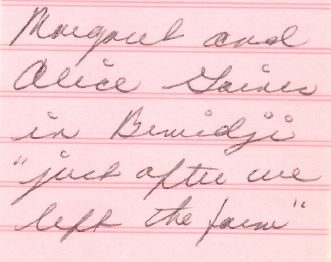 Margaret and
Alice Gaines
in Bemidji
"just after we
left the farm"